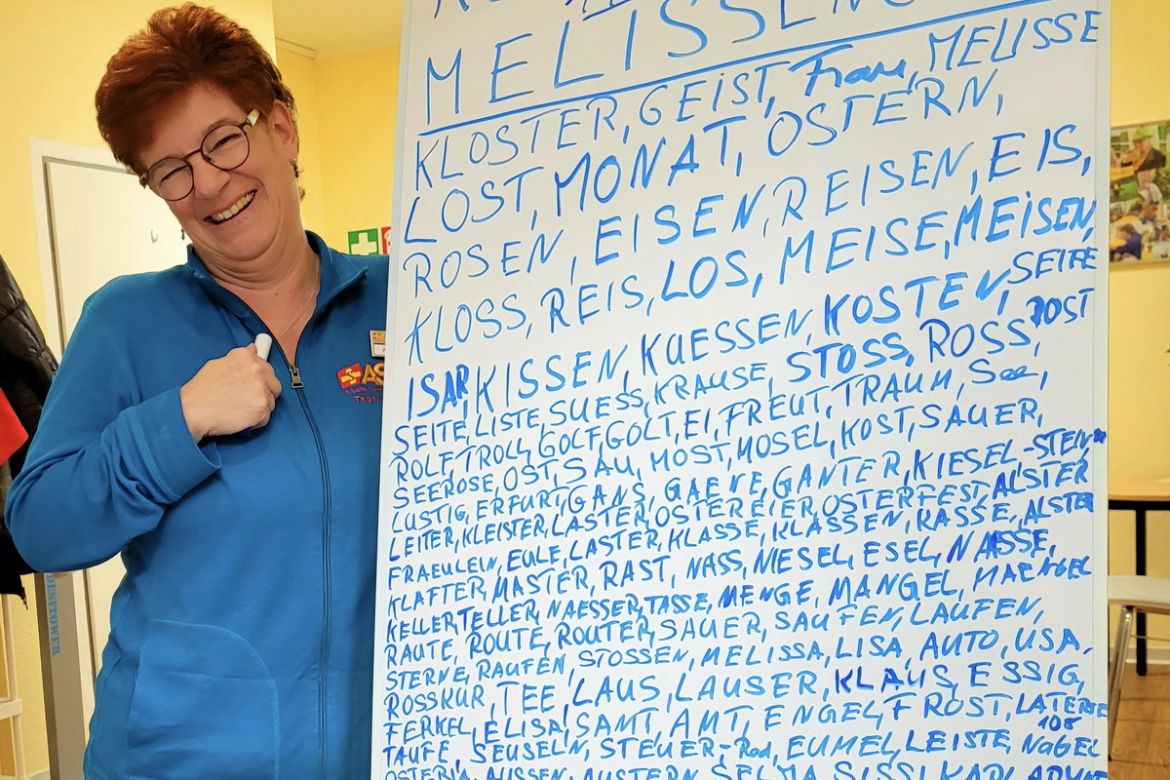 MELISSEN
KLOSTER, GEIST, Frau, MELISSE
LOST, MONAT, OSTERN,
ROSEN, EISEN, REISEN, EIS,
KLOSS, REIS, LOS, MEISE, MEISEN,
ISAR, KISSEN, KUESSEN, KOSTEN, SEIFE
SEITE, LISTE, SUESS, KRAUSE, STOSS, ROSS, POST
ROLF, TROLL, GOLF, GOLT, EI, FREUT, TRAUM, See,
SEEROSE, OST, SAU, MOST, MOSEL, KOST, SAUER,
LUSTIG, ERFURT, GANS, GAENE, GANTER, KIESEL-STEIN
LEITER, KLEISTER, LASTER, OSTEREIER, OSTERFEST, ALSTER
FRAEULEIN, EULE, LASTER, KLASSE, KLASSEN, RASSE, ALSTER
KLAFTER, MASTER, RAST, NASS, NIESEL, ESEL, NAESSE,
KELLER, TELLER, NAESSER, TASSE, MENGE, MANGEL, MAENGEL
RAUTE, ROUTE, ROUTER, SAUER, SAUFEN, LAUFEN,
STERNE, RAUFEN, STOSSEN, MELISSA, LISA, AUTO, USA,
ROSSKUR, TEE, LAUS, LAUSER, KLAUS, ESSIG,
FERKEL, ELISA, SAMT, AMT, ENGEL, FROST, LATERNE
108
TAUFE, SEUSELN, STEUER-Rad, EUMEL, LEISTE, NaGEL
AUSTERN, SELMA, SISSI, KARL
AS